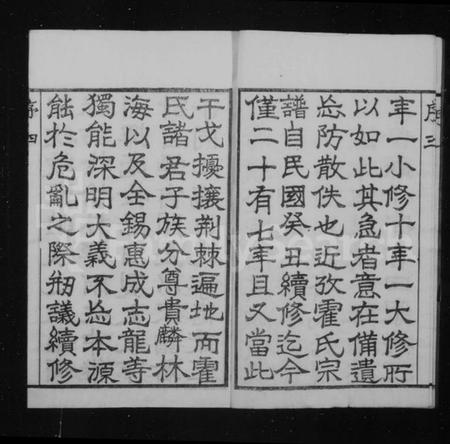 序 三
年一小修十年一大修所
以如此其急者意在備遺
忘防散佚也近攷霍氏宗
譜自民國癸丑續修迄今
僅二十有七年且又當此
干戈擾攘荆棘遍地而霍
民諸君子族分尊貴麟林
海以及全錫惠成志龍等
獨能深明大義不忘本源
能於危亂之際刱議續修
序 四